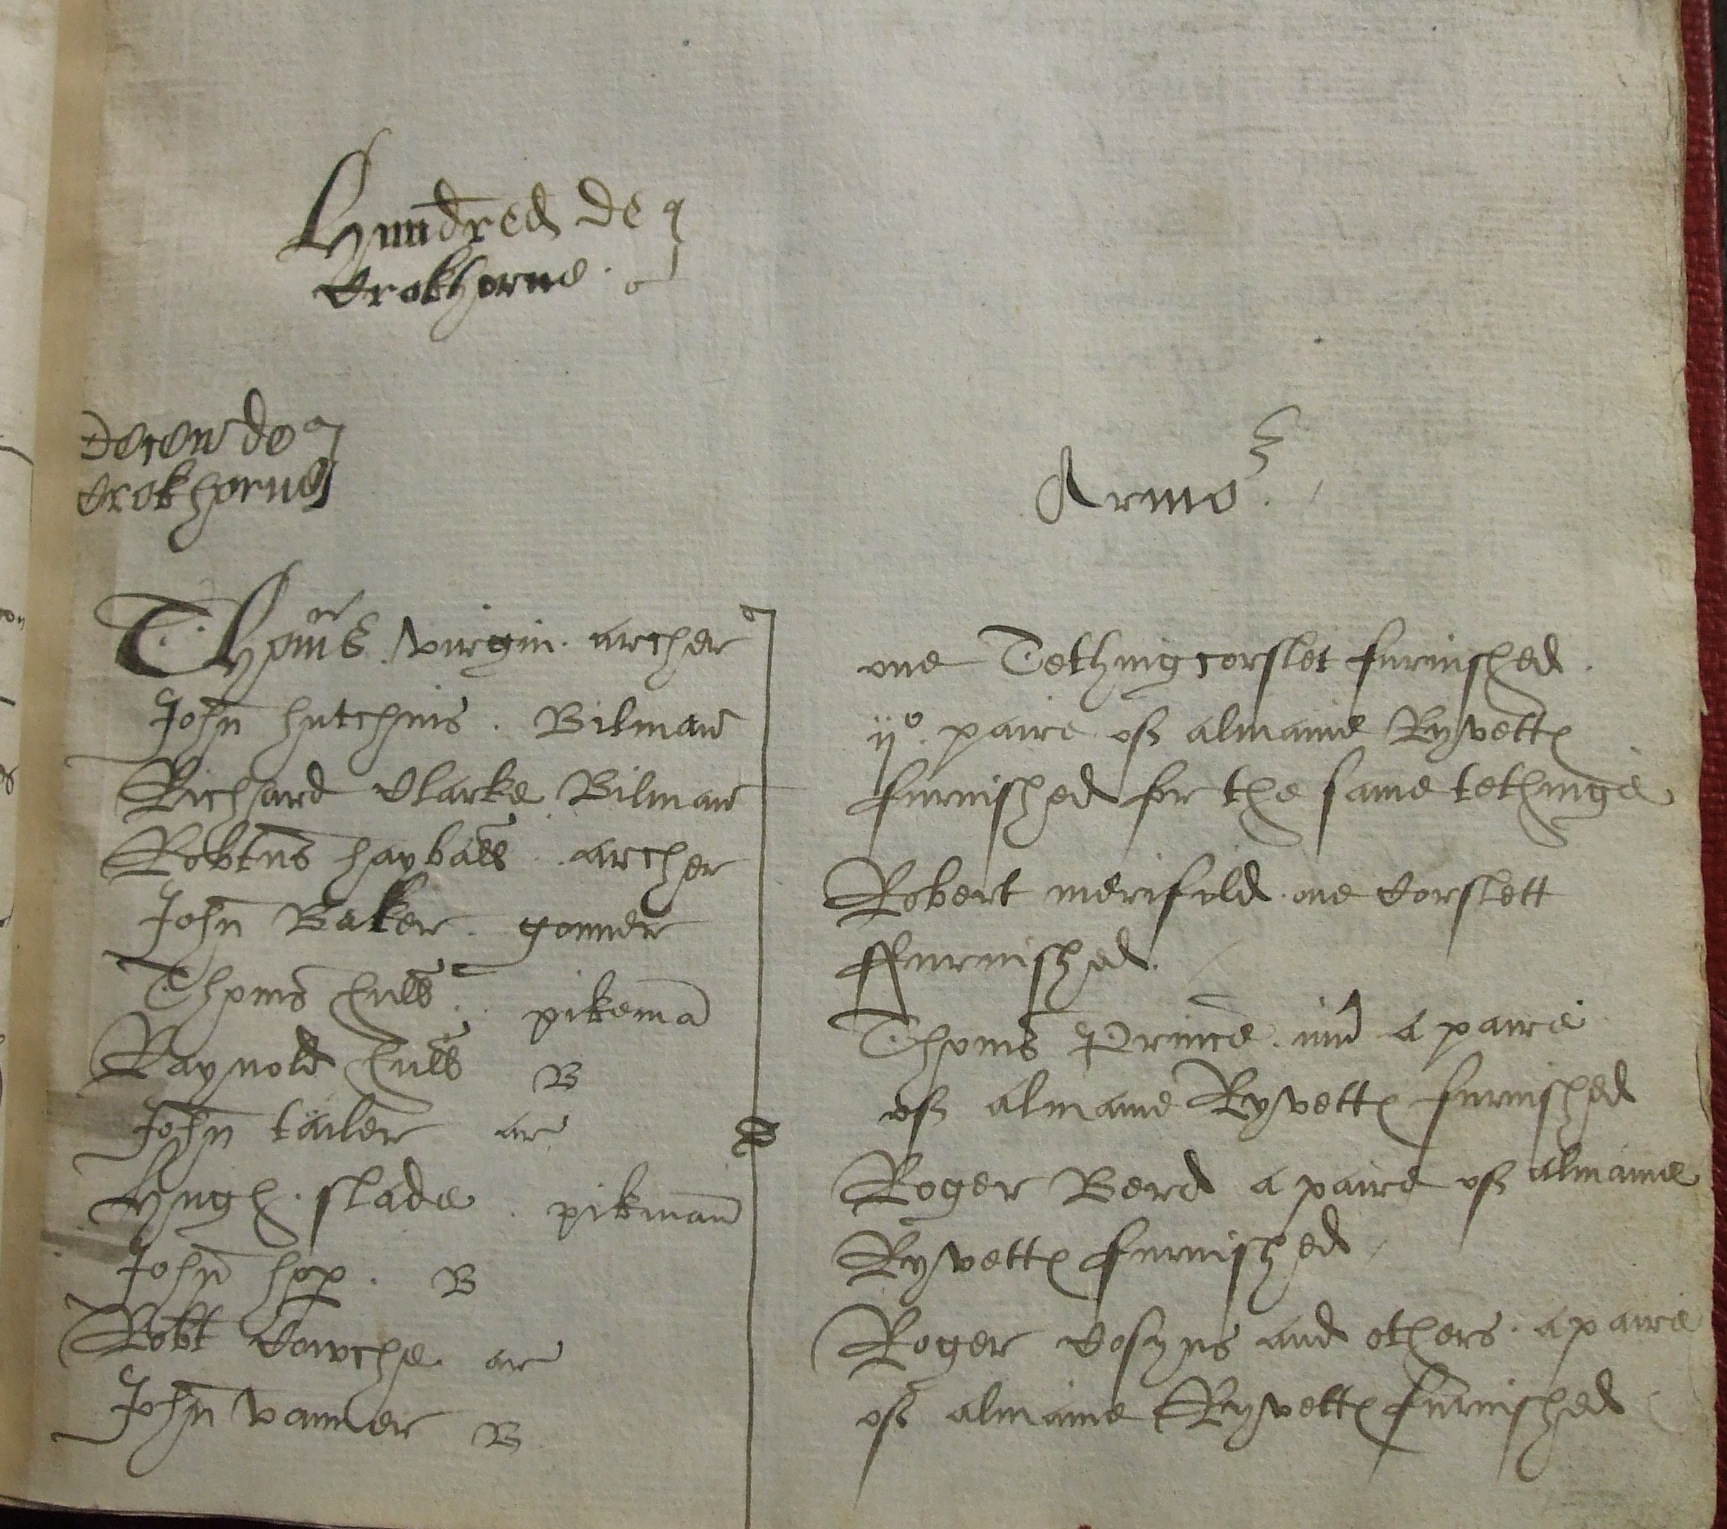 Hundred de
Crokhorne.
Decen de
Crokhorne
Armor.
Thoms virgin. archer
John hutchins. Bilman
Richard Clarke Bilman
Robtus hayball. archer
John Baker. gonner
Thoms hull. pikema
Raynold hull B
John tailer ar
Hugh. slade. pikman
John hop. B
Robt Cowche ar
John vanner B
one Tethingcorslet furnished.
ijo. paire of almaine Ryvetts
furnished for the same tethinge
Robert merifild. one Corslett
ffurnished.
Thoms Prince. a paire
of almaine Ryvetts furnished
Roger Berd a paire of almaine
Ryvetts furnished
Roger Cosyns and others. a paire
of almaine Ryvetts furnished